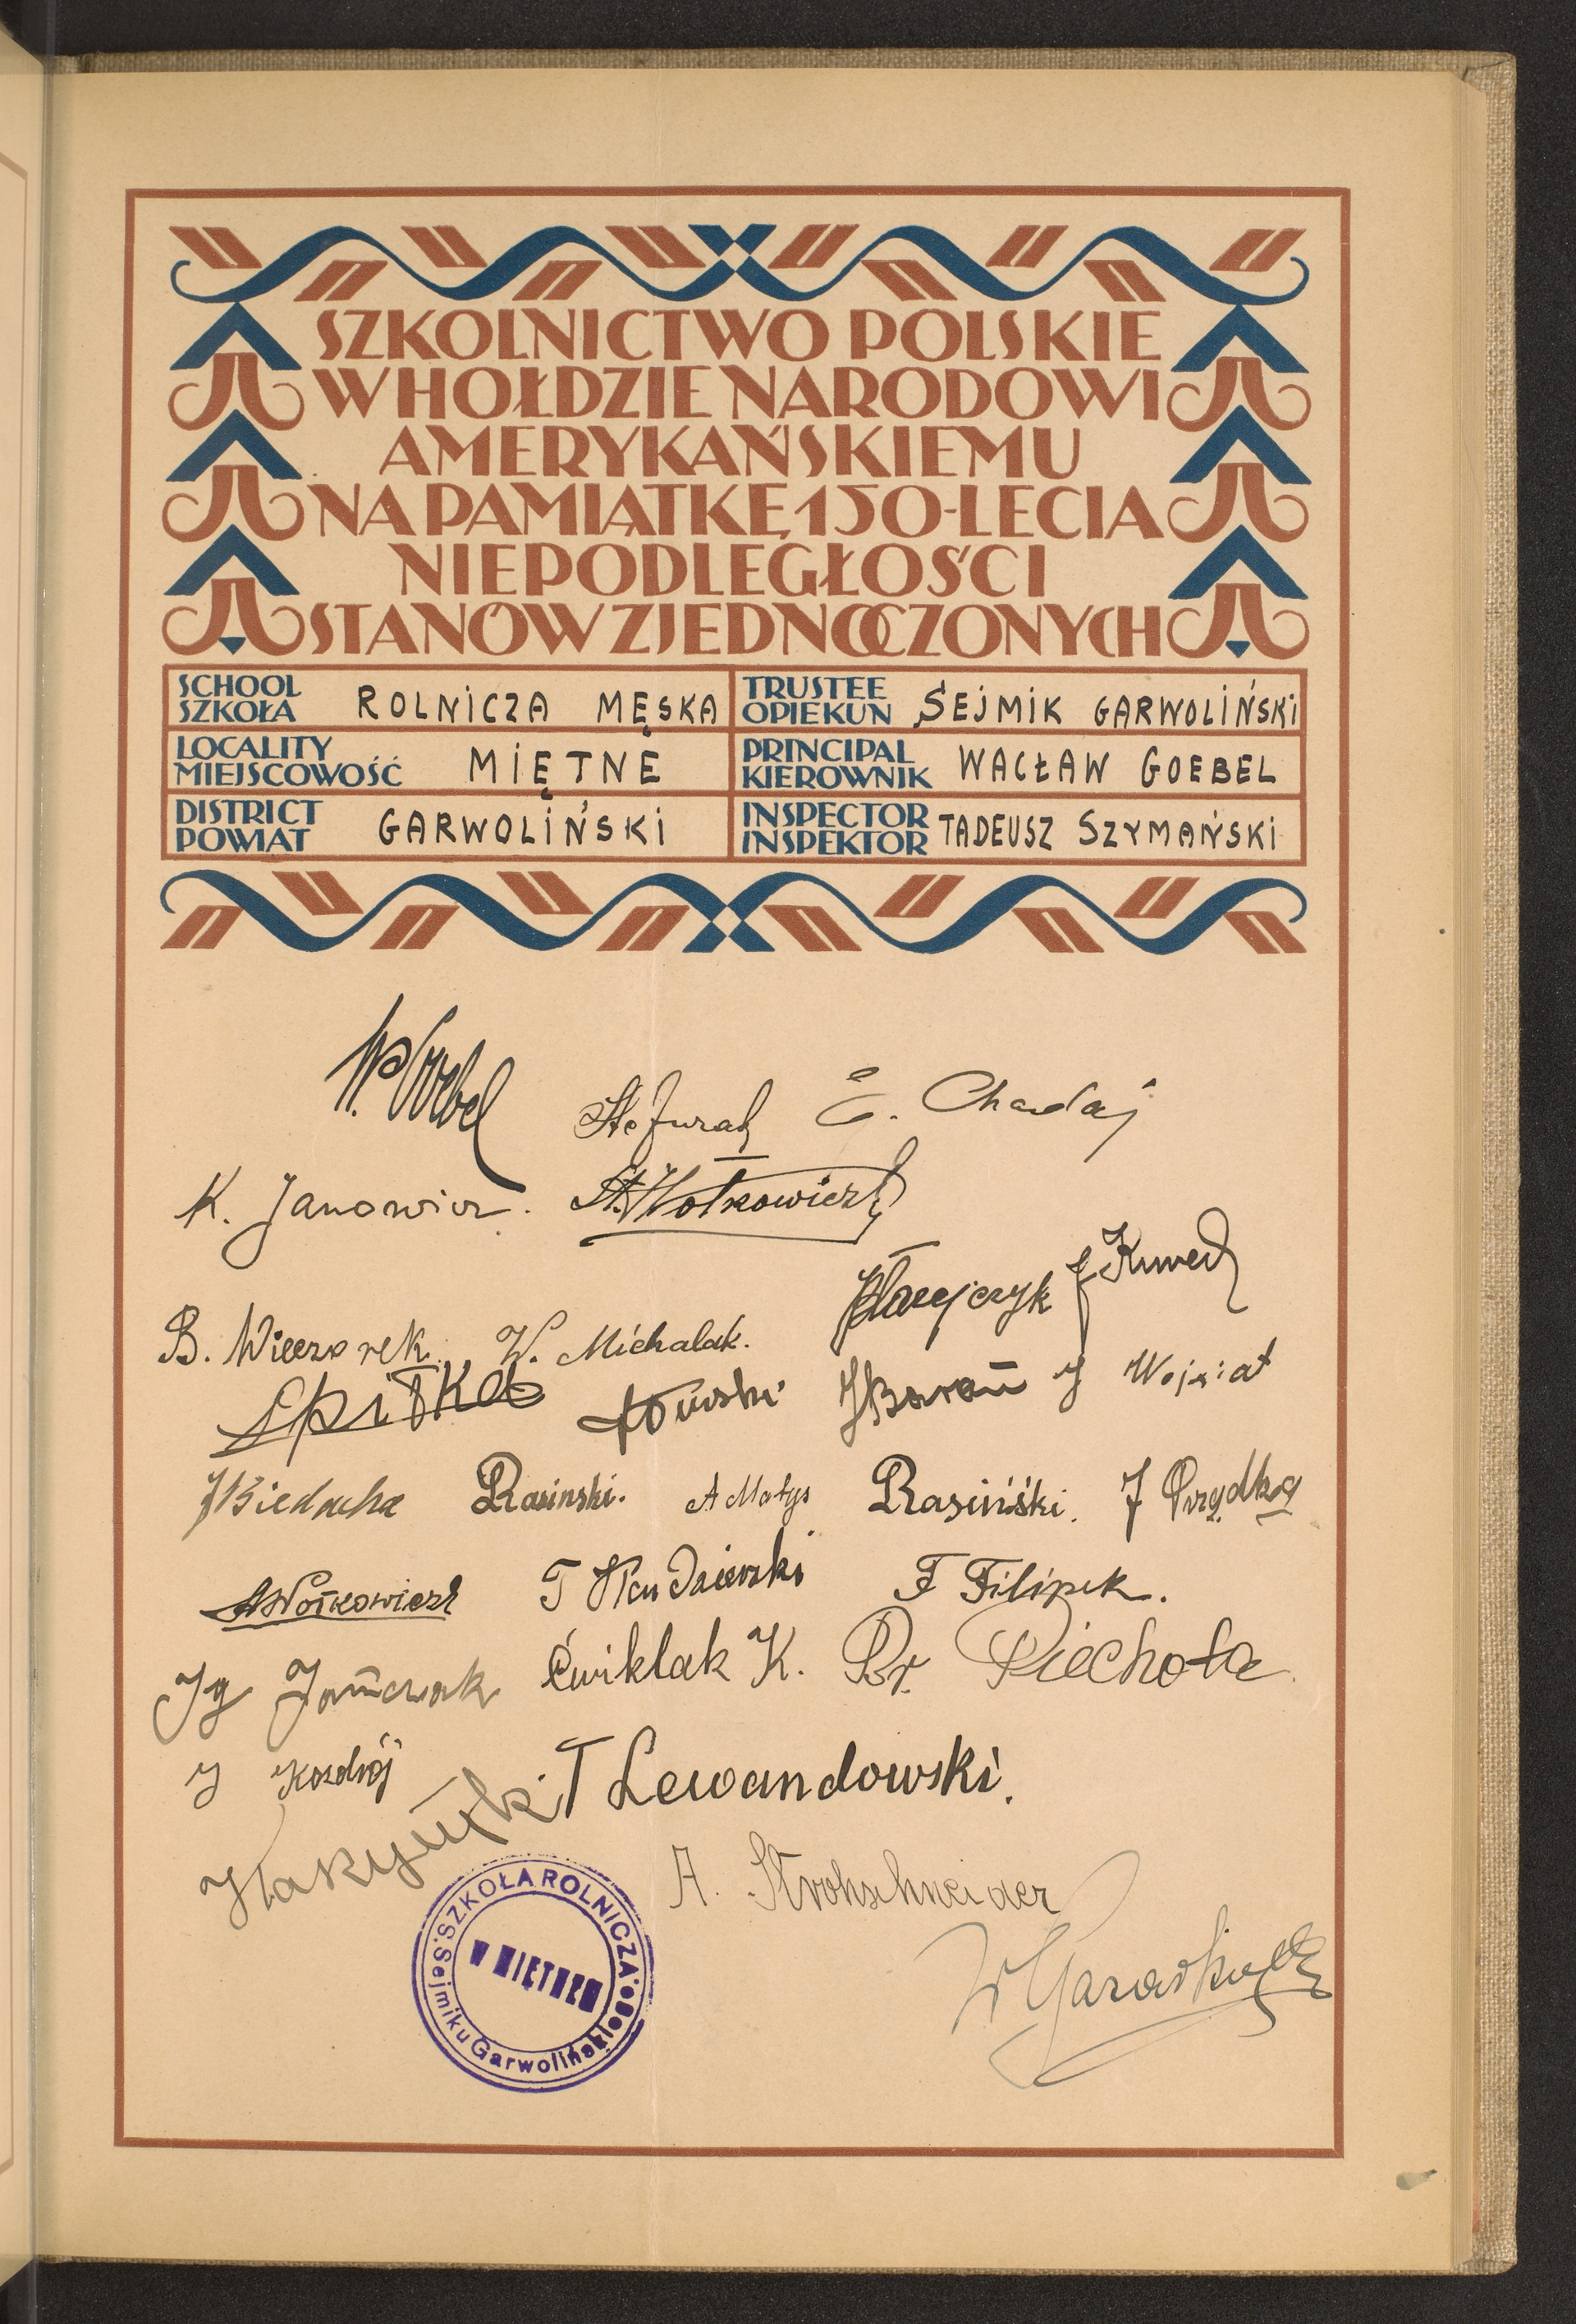 SZKOLNICTWO POLSKIE
W HOŁDZIE NARODOWI
AMERYKAŃSKIEMU
NA PAMIĄTKĘ 150-LECIA
NIEPODLEGŁOŚCI
STANÓW ZJEDNOCZONYCH
SCHOOL
SZKOŁA ROLNICZA MĘSKA
TRUSTEE
OPIEKUN SEJMIK GARWOLIŃSKI
LOCALITY
MIEJSCOWOŚĆ MIĘTNE
PRINCIPAL
KIEROWNIK WACŁAW GOEBEL
DISTRICT
POWIAT GARWOLIŃSKI
INSPECTOR
INSPEKTOR TADEUSZ SZYMAŃSKI
W. Goebel
E. Chadaj
K. Janowicz. St. Wołkowicz
B. Wieczorek. W. Michalak.
Spitka J Baran J Wojciat
J Bieducha Rasinski. A Matys Rasiński. J Prządka
A Wołkowicz F Filipek.
Ig Janczak Ćwiklak K. Br. Piechota
J Kozdrój T Lewandowski.
A. Strohschneider
SZKOŁA ROLNICZA
W MIĘTNEM
Sejmiku Garwolińskiego